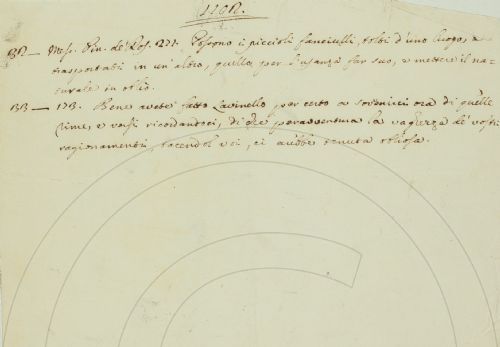 1162.
BP — Mess. Pin. de' Ros. 277. Possono i piccioli fanciulli, tolti d'uno luogo, e
trasportati in un'altro, quello, per l'usanza far suo, e mettere il na-
turale in oblio.
BB — 173. Bene avete fatto Lavinello per certo a sovenirci ora di quelle
rime, e voi ricordandoci, di che peravventura la vaghezza de' vostri
ragionamenti, tacendol voi, ci arebbe tenuta obliosa.